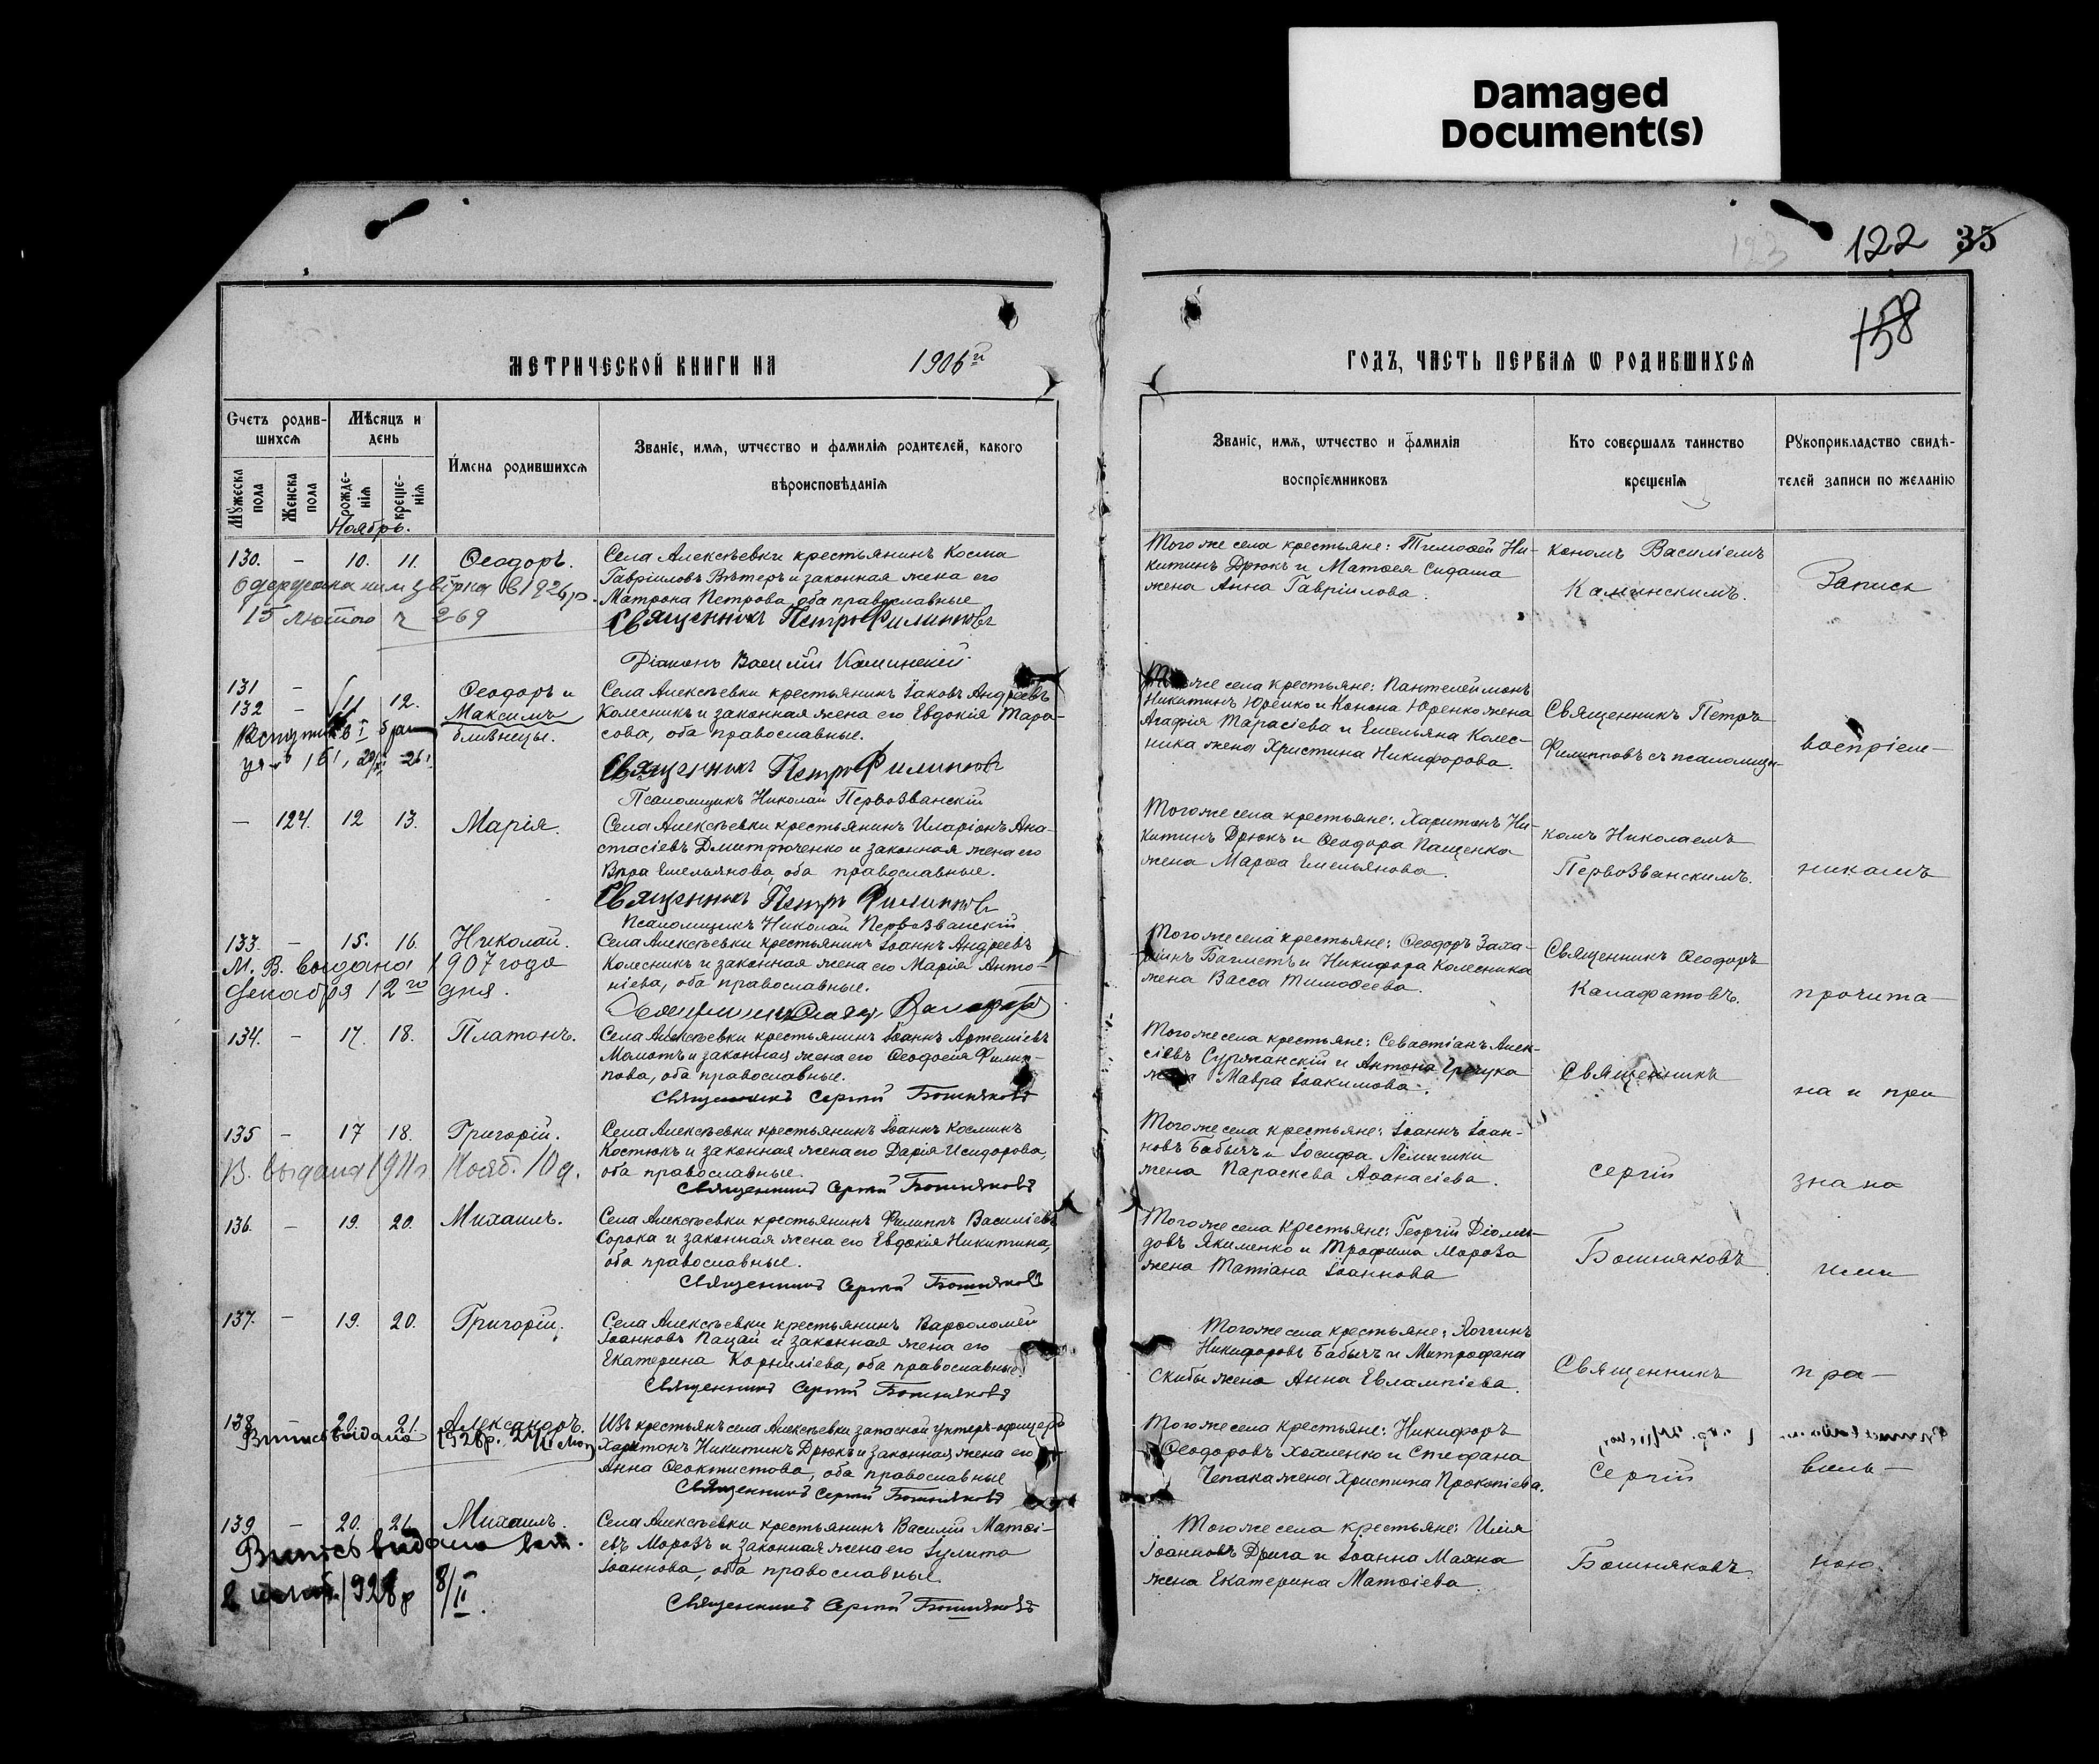 Damaged
Document(s)
122 35
123
158
МЕТРИЧЕСКОЙ КНИГИ НА 1906й
ГОДЪ, ЧАСТЬ ПЕРВАЯ Ѡ РОДИВШИХСЯ
Счетъ родив-
шихся
Мужеска пола
Женска пола
Мѣсяцъ и
день
рожде-
нія
креще-
нія
Имена родившихся
Званіе, имя, ѡтчество и фамилія родителей, какого
вѣроисповѣданія
Званіе, имя, ѡтчество и фамилія
воспріемниковъ
Кто совершалъ таинство
крещенія
Рукоприкладство свидѣ-
телей записи по желанію
Ноябрь.
130. – 10. 11. Ѳеодоръ.
Села Алексѣевки крестьянинъ Косма
Гавріиловъ Вѣтеръ и законная жена его
Матрона Петрова оба православные
Священникъ Петръ Филипповъ
Діаконъ Василій Каминскій
15 лютого ч 269
Тогоже села крестьяне: Тимоѳей Ни-
китинъ Дрюкъ и Матѳея Сидаша
жена Анна Гавріилова.
кономъ Василіемъ
Каминскимъ.
Запись
131 –
132 – 11 12. Ѳеодоръ и
Максимъ
близнецы.
Села Алексѣевки крестьянинъ Іаковъ Андреевъ
Колесникъ и законная жена его Евдокія Тара-
сова, оба православные.
Священникъ Петръ Филипповъ
Псаломщикъ Николай Первозванскій
Тогоже села крестьяне: Пантелеймонъ
Никитинъ Юренко и Конона Юренко жена
Агафія Тарасіева и Емельяна Колес-
ника жена Христина Никифорова.
Священникъ Петръ
Филипповъ съ псаломщи-
воспріем-
– 124. 12 13. Марія.
Села Алексѣевки крестьянинъ Иларіонъ Ана-
стасіевъ Дмитрюченко и законная жена его
Вѣра Емельянова, оба православные.
Священникъ Петръ Филипповъ
Псаломщикъ Николай Первозванскій
Тогоже села крестьяне: Харитонъ Ни-
китинъ Дрюкъ и Ѳеодора Пащенка
жена Марѳа Емельянова.
комъ Николаемъ
Первозванскимъ.
никамъ
133. – 15. 16. Николай.
М. В. выдана 1907 года
Декабря 12го дня.
Села Алексѣевки крестьянинъ Іоаннъ Андреевъ
Колесникъ и законная жена его Марія Анто-
ніева, оба православные.
Тогоже села крестьяне: Ѳеодоръ Заха-
ріинъ Баглистъ и Никифора Колесника
жена Васса Тимоѳеева.
Священникъ Ѳеодоръ
Калафатовъ.
прочита-
134. – 17. 18. Платонъ.
Села Алексѣевки крестьянинъ Іоаннъ Артеміевъ
Мамотъ и законная жена его Ѳеодосія Филип-
пова, оба православные.
Священникъ Сергій Бошняковъ
Тогоже села крестьяне: Севастіанъ Алек-
сіевъ Суржанскій и Антона Гречука
жена Мавра Іоакимова.
Священникъ
на и при
135 – 17 18. Григорій.
В. выдана 1911 г Нояб. 10 д.
Села Алексѣевки крестьянинъ Іоаннъ Косминъ
Костюкъ и законная жена его Дарія Исидорова,
оба православные.
Священникъ Сергій Бошняковъ
Тогоже села крестьяне: Іоаннъ Іоан-
новъ Бабычъ и Іосифа Лемишки
жена Параскева Аѳанасіева.
Сергій
знана
136. – 19. 20. Михаилъ.
Села Алексѣевки крестьянинъ Филиппъ Василіевъ
Сорока и законная жена его Евдокія Никитина,
оба православные.
Священникъ Сергій Бошняковъ
Тогоже села крестьяне: Георгій Діоми-
довъ Якименко и Трофима Мороза
жена Татіана Іоаннова
Бошняковъ
ими
137. – 19. 20. Григорій.
Села Алексѣевки крестьянинъ Варѳоломей
Іоанновъ Пацай и законная жена его
Екатерина Корниліева, оба православные.
Священникъ Сергій Бошняковъ
Тогоже села крестьяне: Логгинъ
Никифоровъ Бабычъ и Митрофана
Скибы жена Анна Евлампіева.
Священникъ
пра-
138 – 20. 21. Александръ.
Изъ крестьянъ села Алексѣевки запасной унтеръ-офицеръ
Харитонъ Никитинъ Дрюкъ и законная жена его
Анна Ѳеоктистова, оба православные
Священникъ Сергій Бошняковъ
Тогоже села крестьяне: Никифоръ
Ѳеодоровъ Хохленко и Стефана
Чепака жена Христина Прокопіева.
Сергій
виль-
139 – 20. 21. Михаилъ.
Села Алексѣевки крестьянинъ Василій Матѳі-
евъ Морозъ и законная жена его Іулита
Іоаннова, оба православные
Священникъ Сергій Бошняковъ
Тогоже села крестьяне: Илія
Іоанновъ Дрига и Іоанна Маяка
жена Екатерина Матѳіева.
Бошняковъ.
ною.
Випись видана
1928 р 8/II.